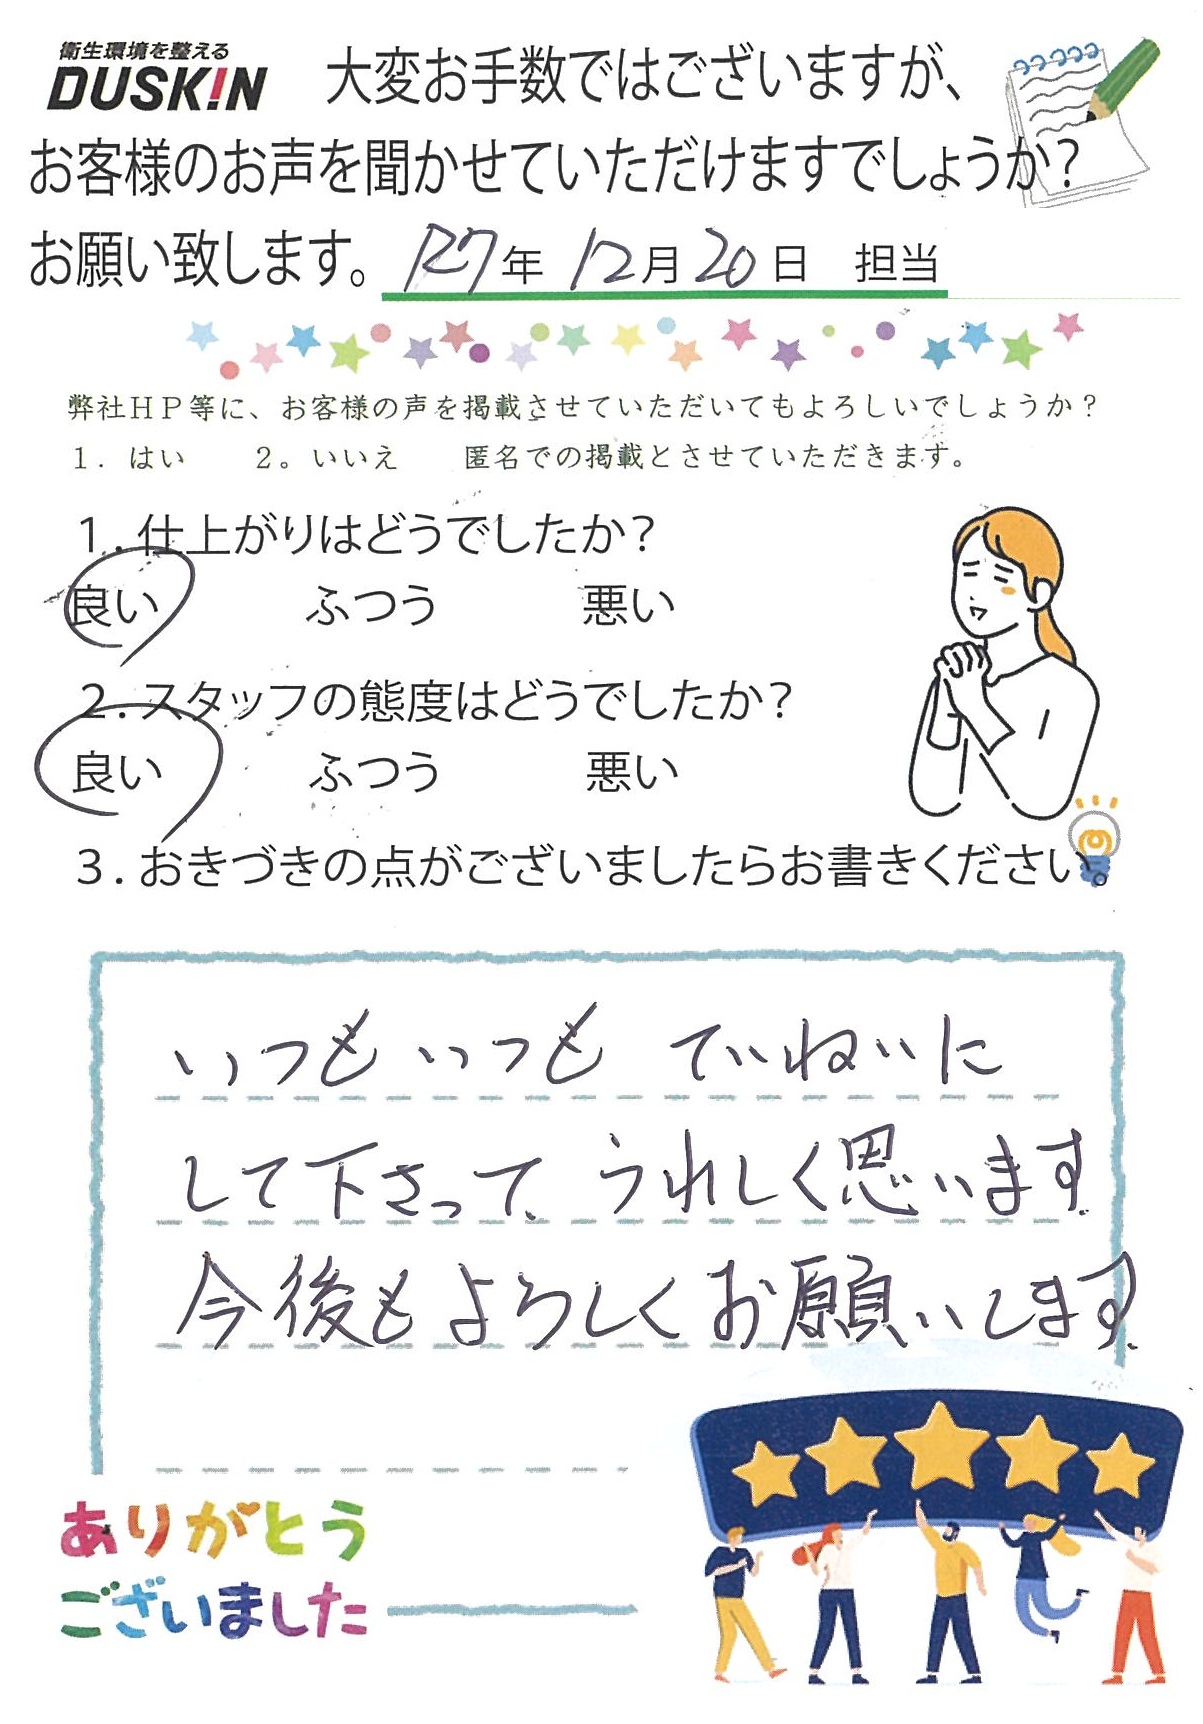 衛生環境を整える
DUSKIN
大変お手数ではございますが、
お客様のお声を聞かせていただけますでしょうか？
お願い致します。 R7年 12月20日 担当
弊社ＨＰ等に、お客様の声を掲載させていただいてもよろしいでしょうか？
１．はい　２。いいえ　匿名での掲載とさせていただきます。
１．仕上がりはどうでしたか？
良い　ふつう　悪い
２．スタッフの態度はどうでしたか？
良い　ふつう　悪い
３．おきづきの点がございましたらお書きください。
いつもいつも ていねいに
して下さって、うれしく思います。
今後もよろしくお願いします。
ありがとう
ございました